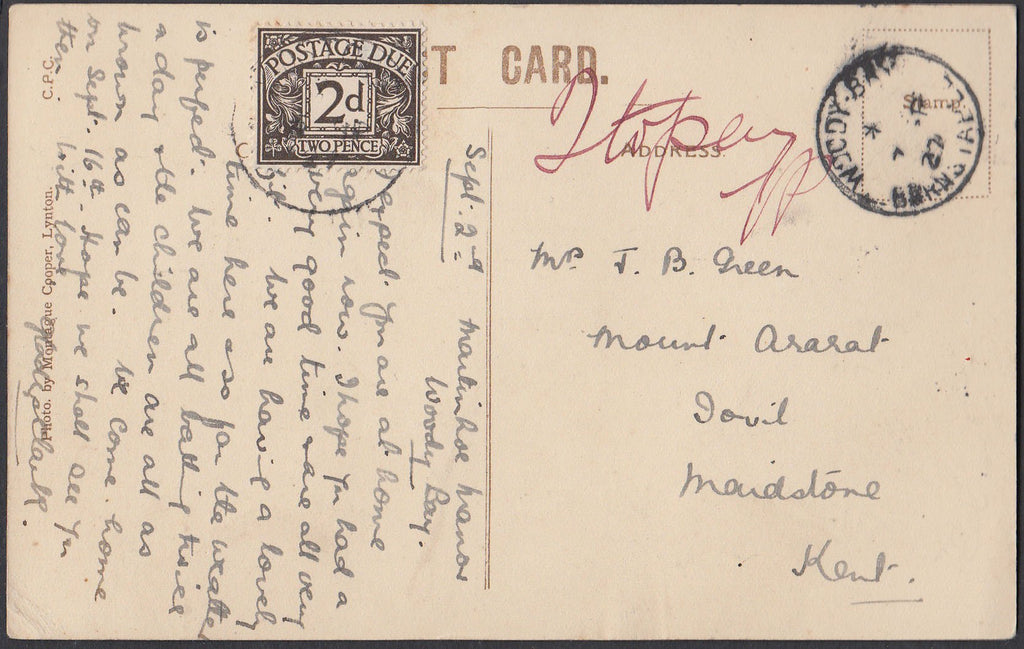 T CARD.
POSTAGE DUE
2d
TWO PENCE
Stamp.
ADDRESS.
WOODY-BAY
BARNSTAPLE
27
Sept. 2nd
Martinhoe Manor
Woody Bay.
expect you are at home
again now. I hope you had a
very good time & are all very
we are having a lovely
time here & so far the weather
is perfect. We are all bathing twice
a day & the children are all as
brown as can be. We come home
on Sept. 16th. Hope we shall see you
then. With love
Mrs J. B. Green
Mount Ararat
Tovil
Maidstone
Kent.
Photo. by Montague Cooper, Lynton.
C.P.C.